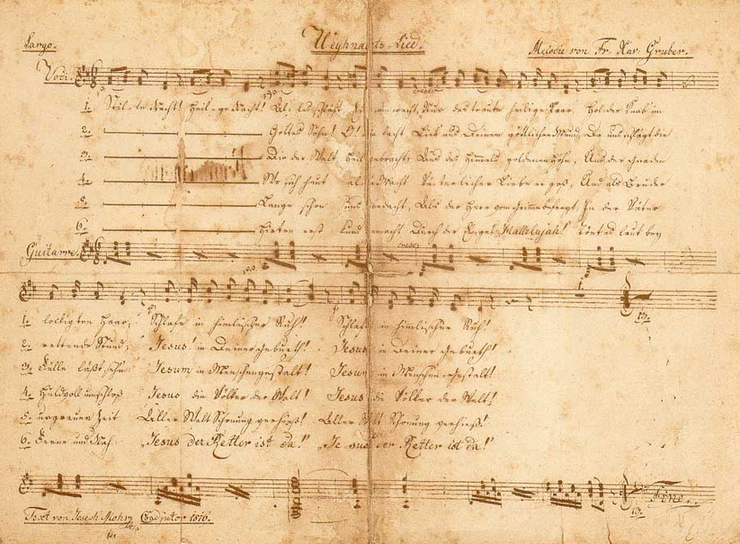 Largo. Weyhnachts-Lied. Melodie von Fr. Xav. Gruber.
Voci.
1. Stil-le Nacht! Heil-ge Nacht! Al-les schläft. Einsam wacht, Nur das traute heilige Paar. Holder Knab' im
2. Gottes Sohn! O! wie lacht Lieb' aus Deinem göttlichen Mund, Da uns schlägt die
3. Die der Welt Heil gebracht, Aus des Himmels goldenen Höhn, Uns der Gnaden
4. Wo sich heut alle Macht Väterlicher Liebe ergoß, Und als Bruder
5. Lange schon uns bedacht, Als der Herr vom Grimme befreyt, In der Väter
6. Hirten erst kund gemacht Durch der Engel Hallelujah! Tönt es laut bey
Guitarre
1. lockigten Haar; Schlafe in himmlischer Ruh! Schlafe in himmlischer Ruh!
2. rettende Stund. Jesus! in Deiner Geburth! Jesus in Deiner Geburth!
3. Fülle läßt sehn Jesum in Menschengestalt! Jesum in Menschengestalt!
4. Huldvoll umschloß Jesus die Völker der Welt! Jesus die Völker der Welt!
5. urgrauer Zeit Aller Welt Schonung verhieß! Aller Welt Schonung verhieß!
6. Ferne und Nah: „Jesus der Retter ist da!" „Jesus der Retter ist da!"
Fine.
Text von Joseph Mohr Coadjutor 1816.